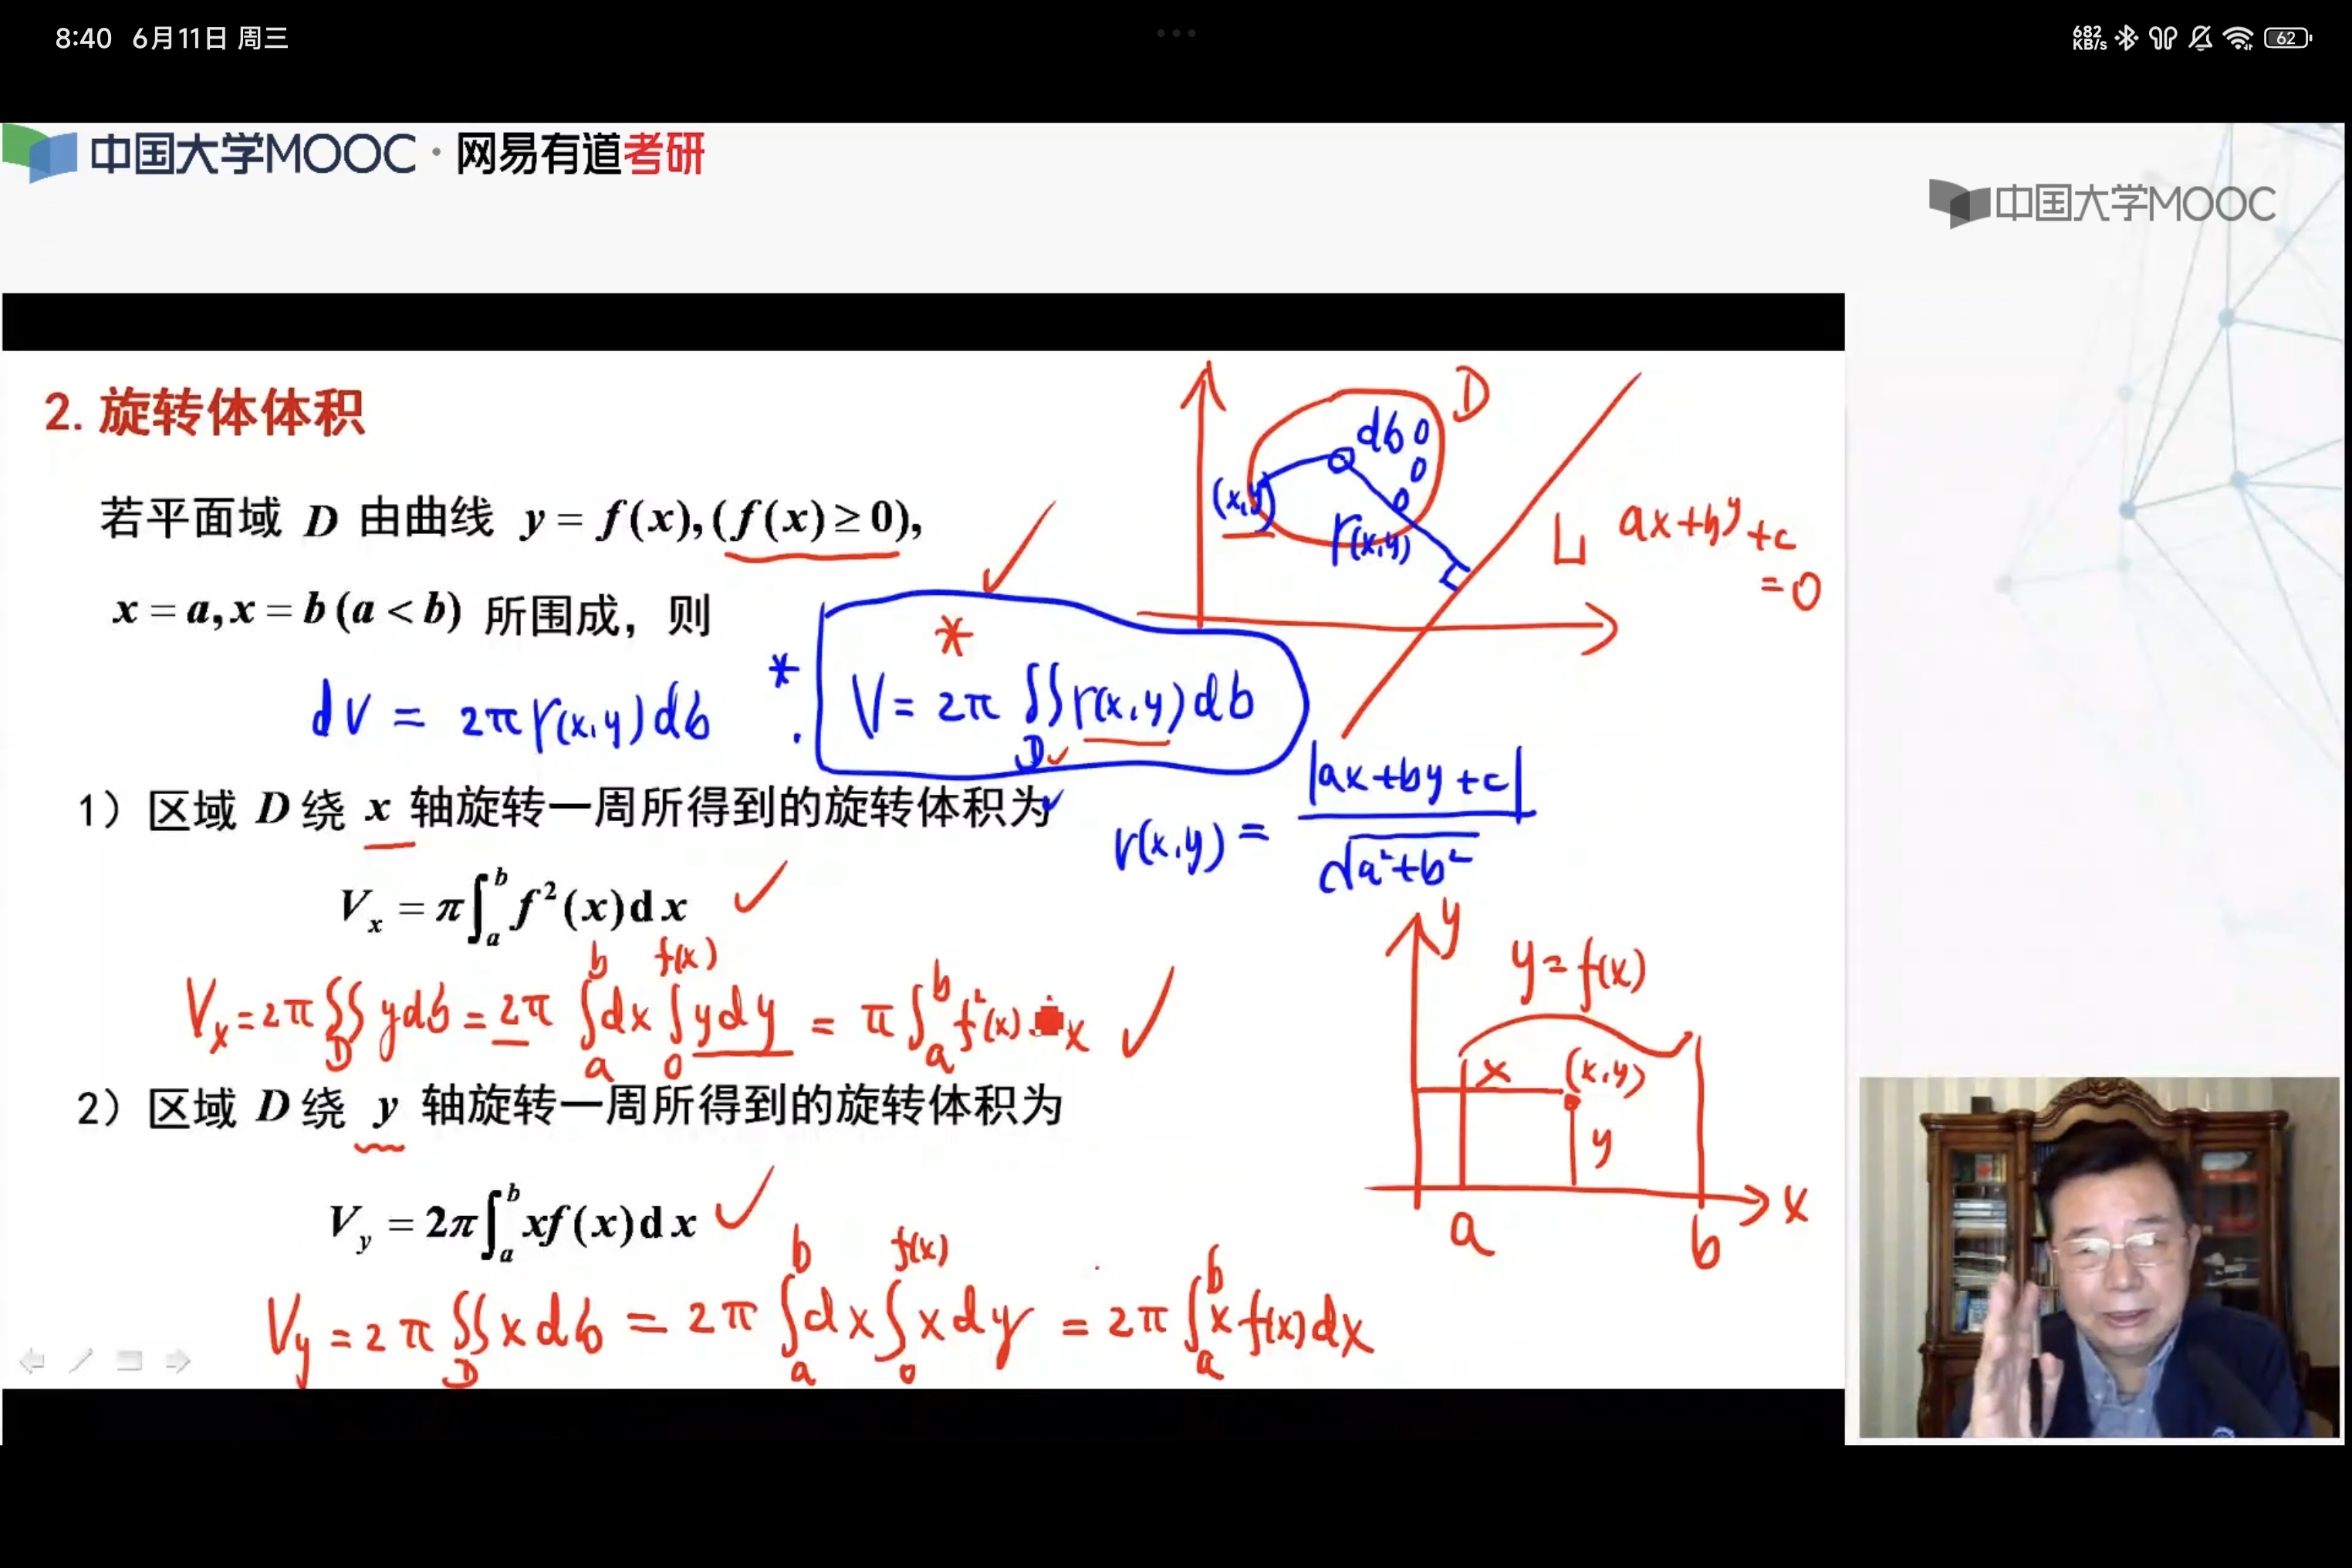 8:40 6月11日 周三
682 KB/s 62
中国大学MOOC·网易有道考研
中国大学MOOC
2. 旋转体体积
若平面域 D 由曲线 y = f(x), (f(x) ≥ 0),
x = a, x = b (a < b) 所围成，则
dV = 2π r(x,y) dσ
* V = 2π ∬_D r(x,y) dσ
*
D
dσ
(x,y)
r(x,y)
L ax+by+c
=0
r(x,y) = |ax+by+c| / √(a²+b²)
1）区域 D 绕 x 轴旋转一周所得到的旋转体积为
V_x = π∫_a^b f²(x)dx
V_x = 2π ∬_D y dσ = 2π ∫_a^b dx ∫_0^{f(x)} y dy = π ∫_a^b f²(x) x
2）区域 D 绕 y 轴旋转一周所得到的旋转体积为
V_y = 2π∫_a^b xf(x)dx
V_y = 2π ∬_D x dσ = 2π ∫_a^b dx ∫_0^{f(x)} x dy = 2π ∫_a^b x f(x) dx
y
y = f(x)
x (x,y)
y
a b x